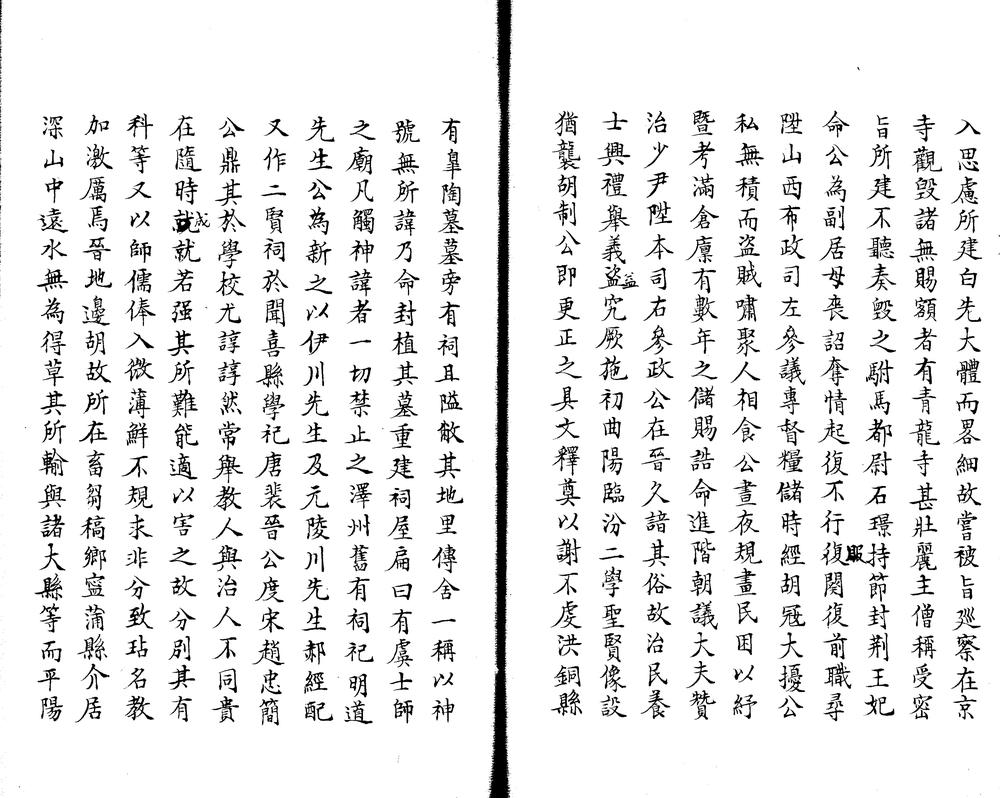 入思慮所建白先大體而畧細故嘗被旨廵察在京
寺觀毁諸無賜額者有青龍寺甚壯麗主僧稱受密
旨所建不聽奏毁之駙馬都尉石璟持節封荆王妃
命公為副居母喪詔奪情起復不行復服闋復前職尋
陞山西布政司左參議專督糧儲時經胡冦大擾公
私無積而盗賊嘯聚人相食公晝夜規畫民困以紓
暨考滿倉廪有數年之儲賜誥命進階朝議大夫贊
治少尹陞本司右參政公在晉久諳其俗故治民養
士興禮舉義盗益究厥施初曲陽臨汾二學聖賢像設
猶襲胡制公即更正之具文釋奠以謝不虔洪銅縣
有臯陶墓墓旁有祠且隘敝其地里傳舍一稱以神
號無所諱乃命封植其墓重建祠屋扁曰有虞士師
之廟凡觸神諱者一切禁止之澤州舊有祠祀明道
先生公為新之以伊川先生及元陵川先生郝經配
又作二賢祠於聞喜縣學祀唐裴晉公度宋趙忠簡
公鼎其於學校尤諄諄然常舉教人與治人不同貴
在隨時就成就若强其所難能適以害之故分別其有
科等又以師儒俸入微薄鮮不規求非分致玷名教
加激厲焉晉地邊胡故所在畜芻稿鄉寧蒲縣介居
深山中遠水無為得草其所輸與諸大縣等而平陽